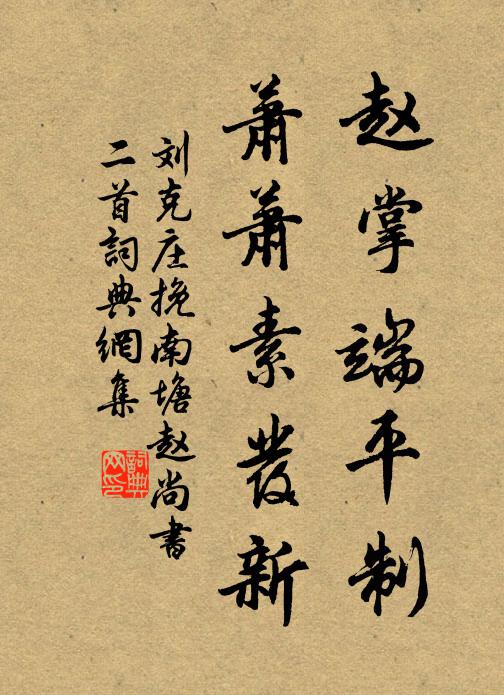 赵掌端平制
萧萧素发新
刘克庄挽南塘赵尚书
二首詞典網集
詞典网印